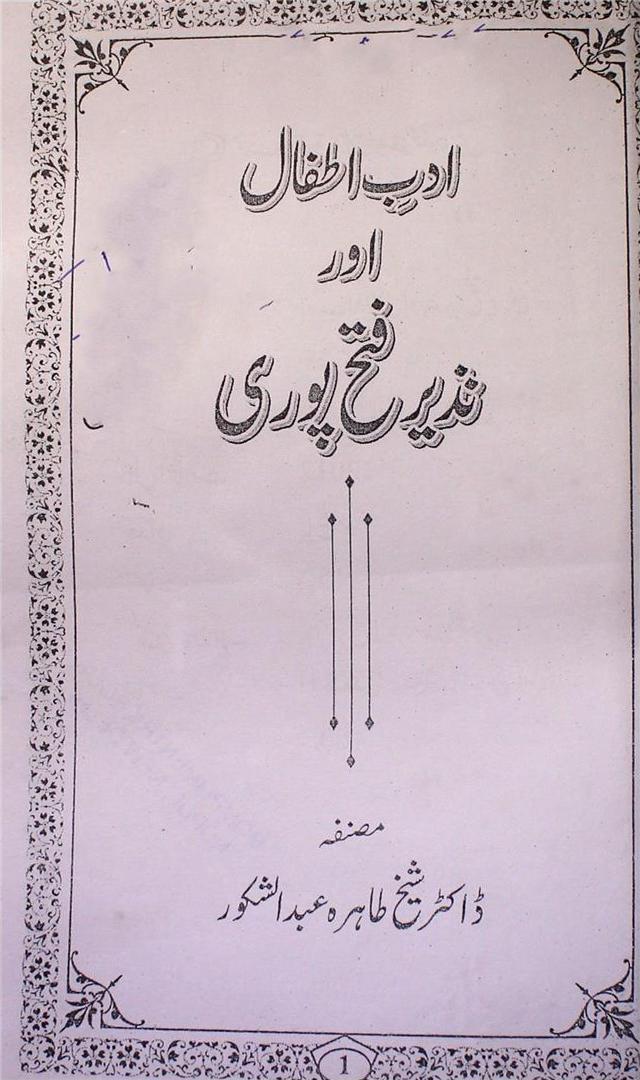 ادبِ اطفال
اور
نذیر فتح پوری
مصنفہ
ڈاکٹر شیخ طاہرہ عبدالشکور
1